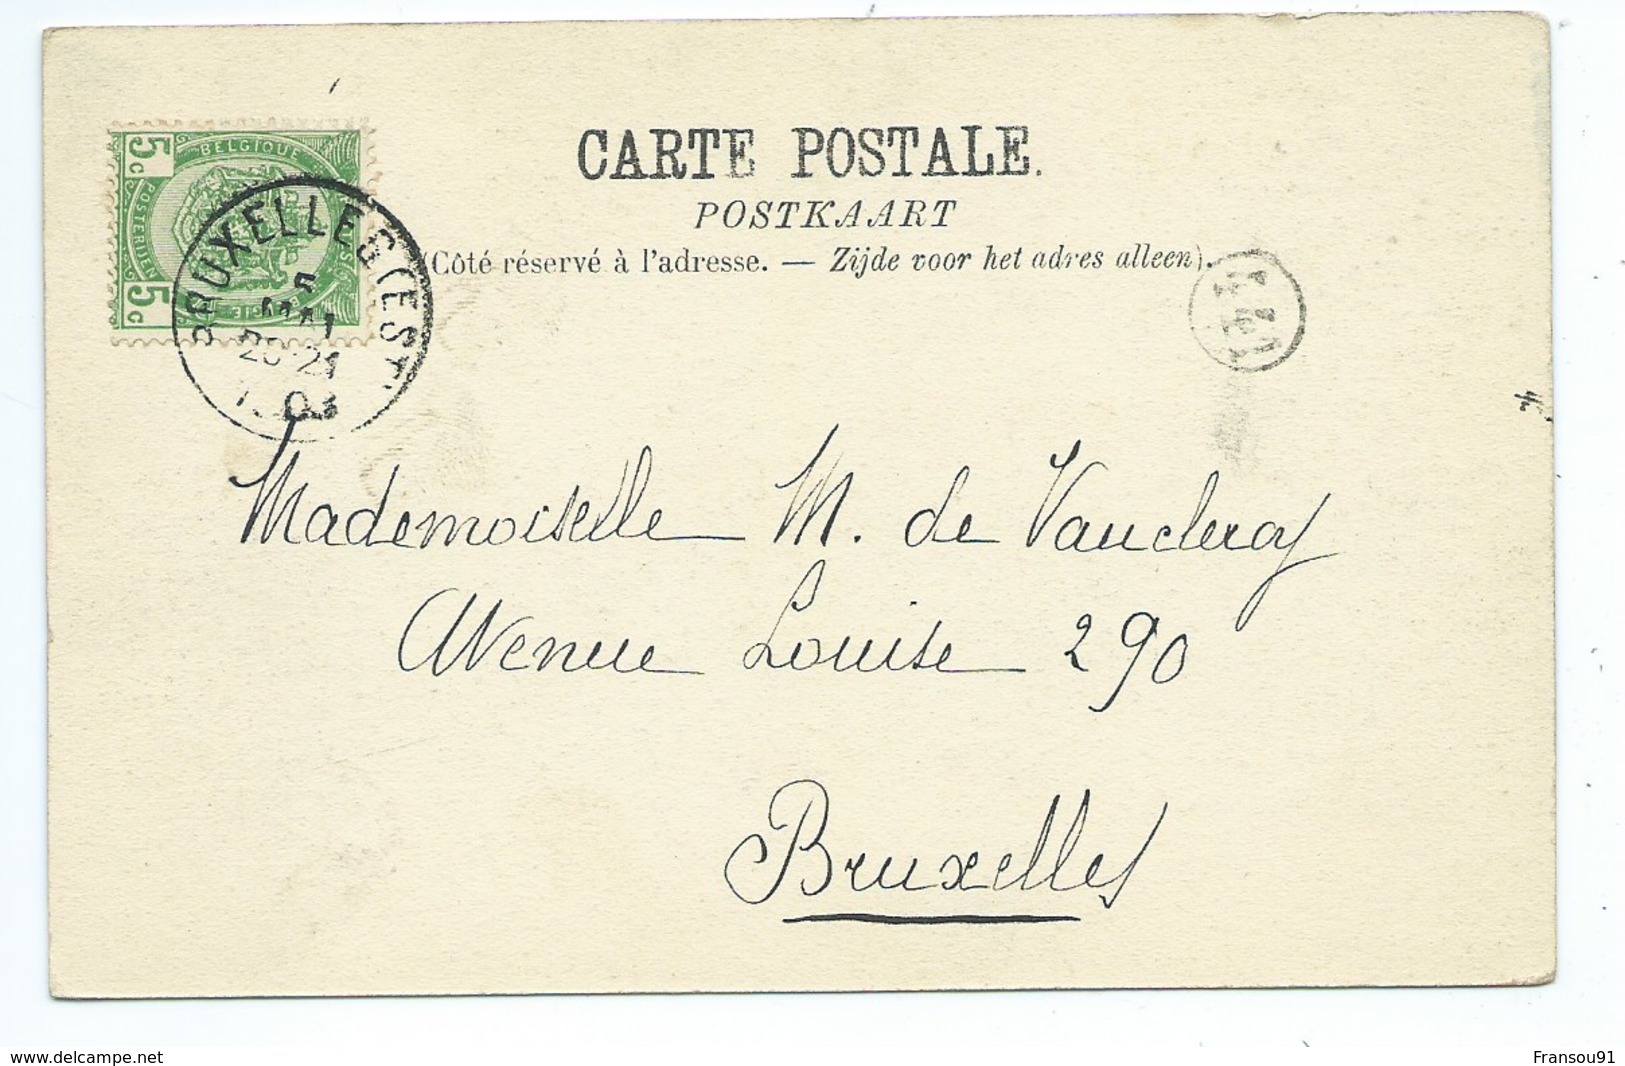 CARTE POSTALE.
POSTKAART
(Côté réservé à l'adresse. — Zijde voor het adres alleen).
5c BELGIQUE 5c
POSTERIJEN
BRUXELLES (EST)
5 MAI
20-21
03
Mademoiselle M. de Vaucleroy
Avenue Louise 290
Bruxelles
www.delcampe.net
Fransou91